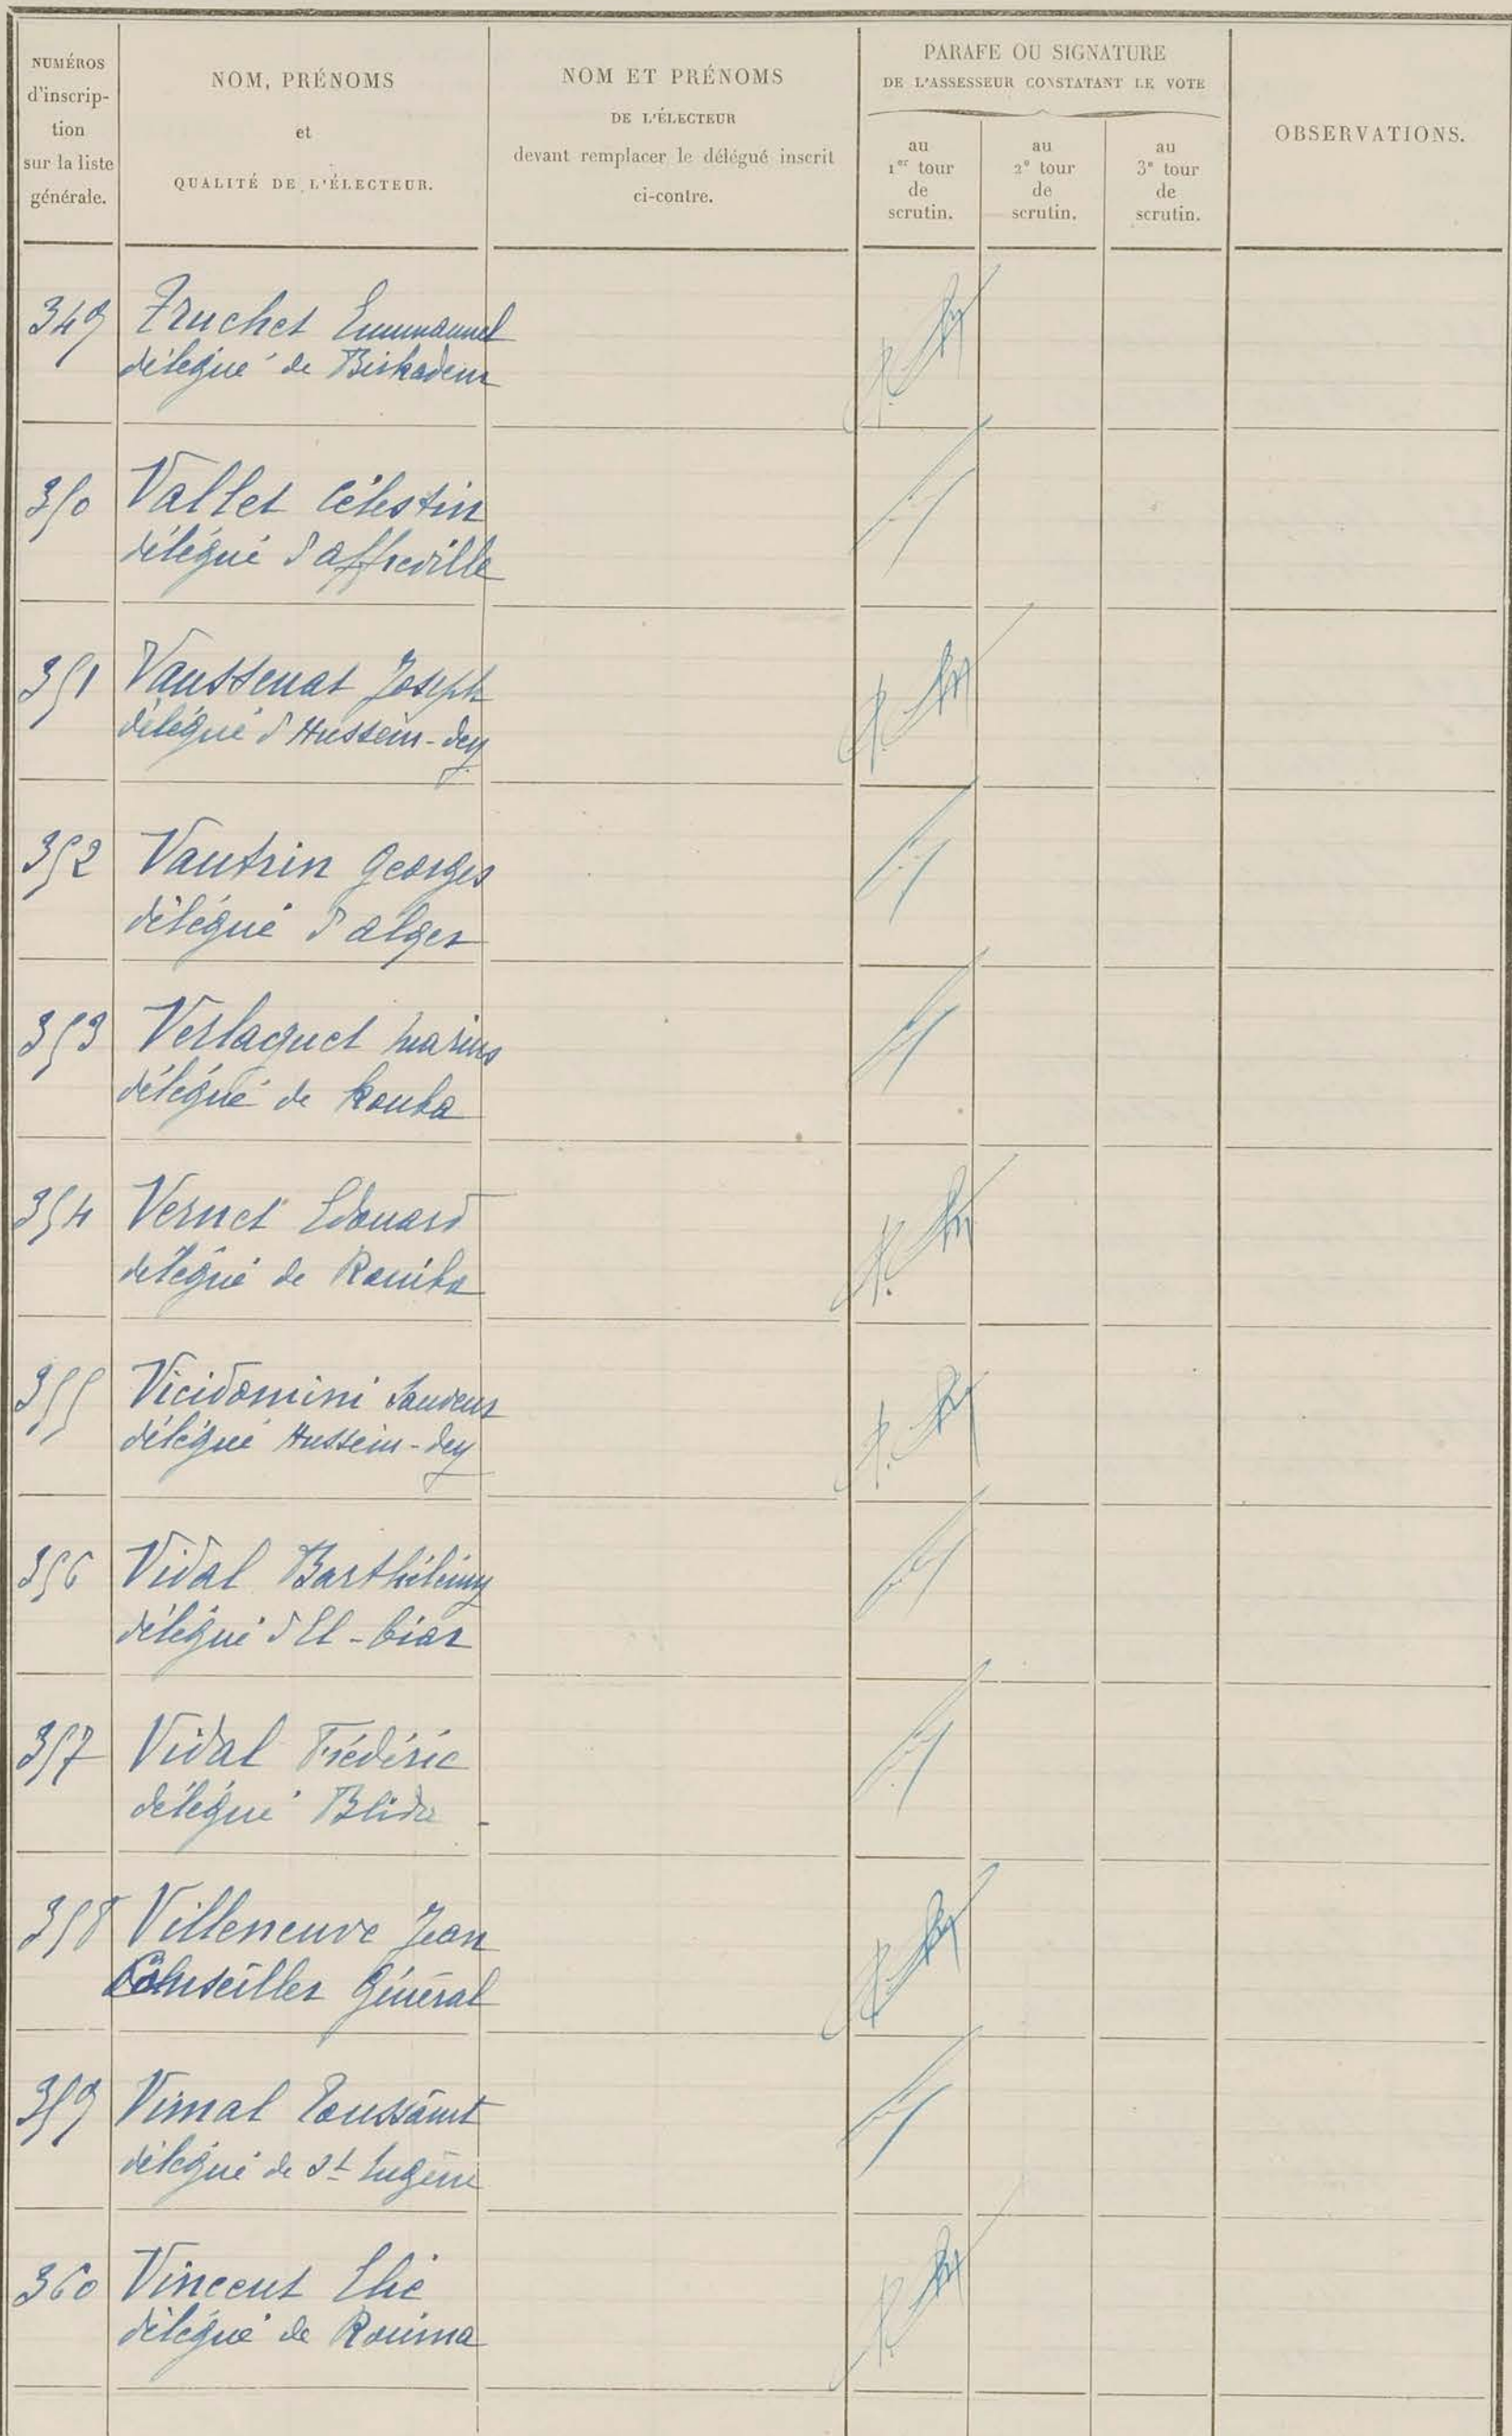 NUMÉROS
d'inscrip-
tion
sur la liste
générale.
NOM, PRÉNOMS
et
QUALITÉ DE L'ÉLECTEUR.
NOM ET PRÉNOMS
DE L'ÉLECTEUR
devant remplacer le délégué inscrit
ci-contre.
PARAFE OU SIGNATURE
DE L'ASSESSEUR CONSTATANT LE VOTE
au
1er tour
de
scrutin.
au
2e tour
de
scrutin.
au
3e tour
de
scrutin.
OBSERVATIONS.
349 Truchet Emmanuel
délégué de Birkadem
350 Vallet Célestin
délégué d'affreville
351 Vaussenat Joseph
délégué d'Hussein-dey
352 Vautrin Georges
délégué d'alger
353 Verlaguet marius
délégué de Kouba
354 Vernet Edouard
délégué de Rouiba
355 Vicidomini
délégué Hussein-dey
356 Vidal Barthélémy
délégué d'El-biar
357 Vidal Frédéric
délégué Blida
358 Villeneuve Jean
Conseiller Général
359 Vimal Toussaint
délégué de St Eugène
360 Vincent Elie
délégué de Rouina